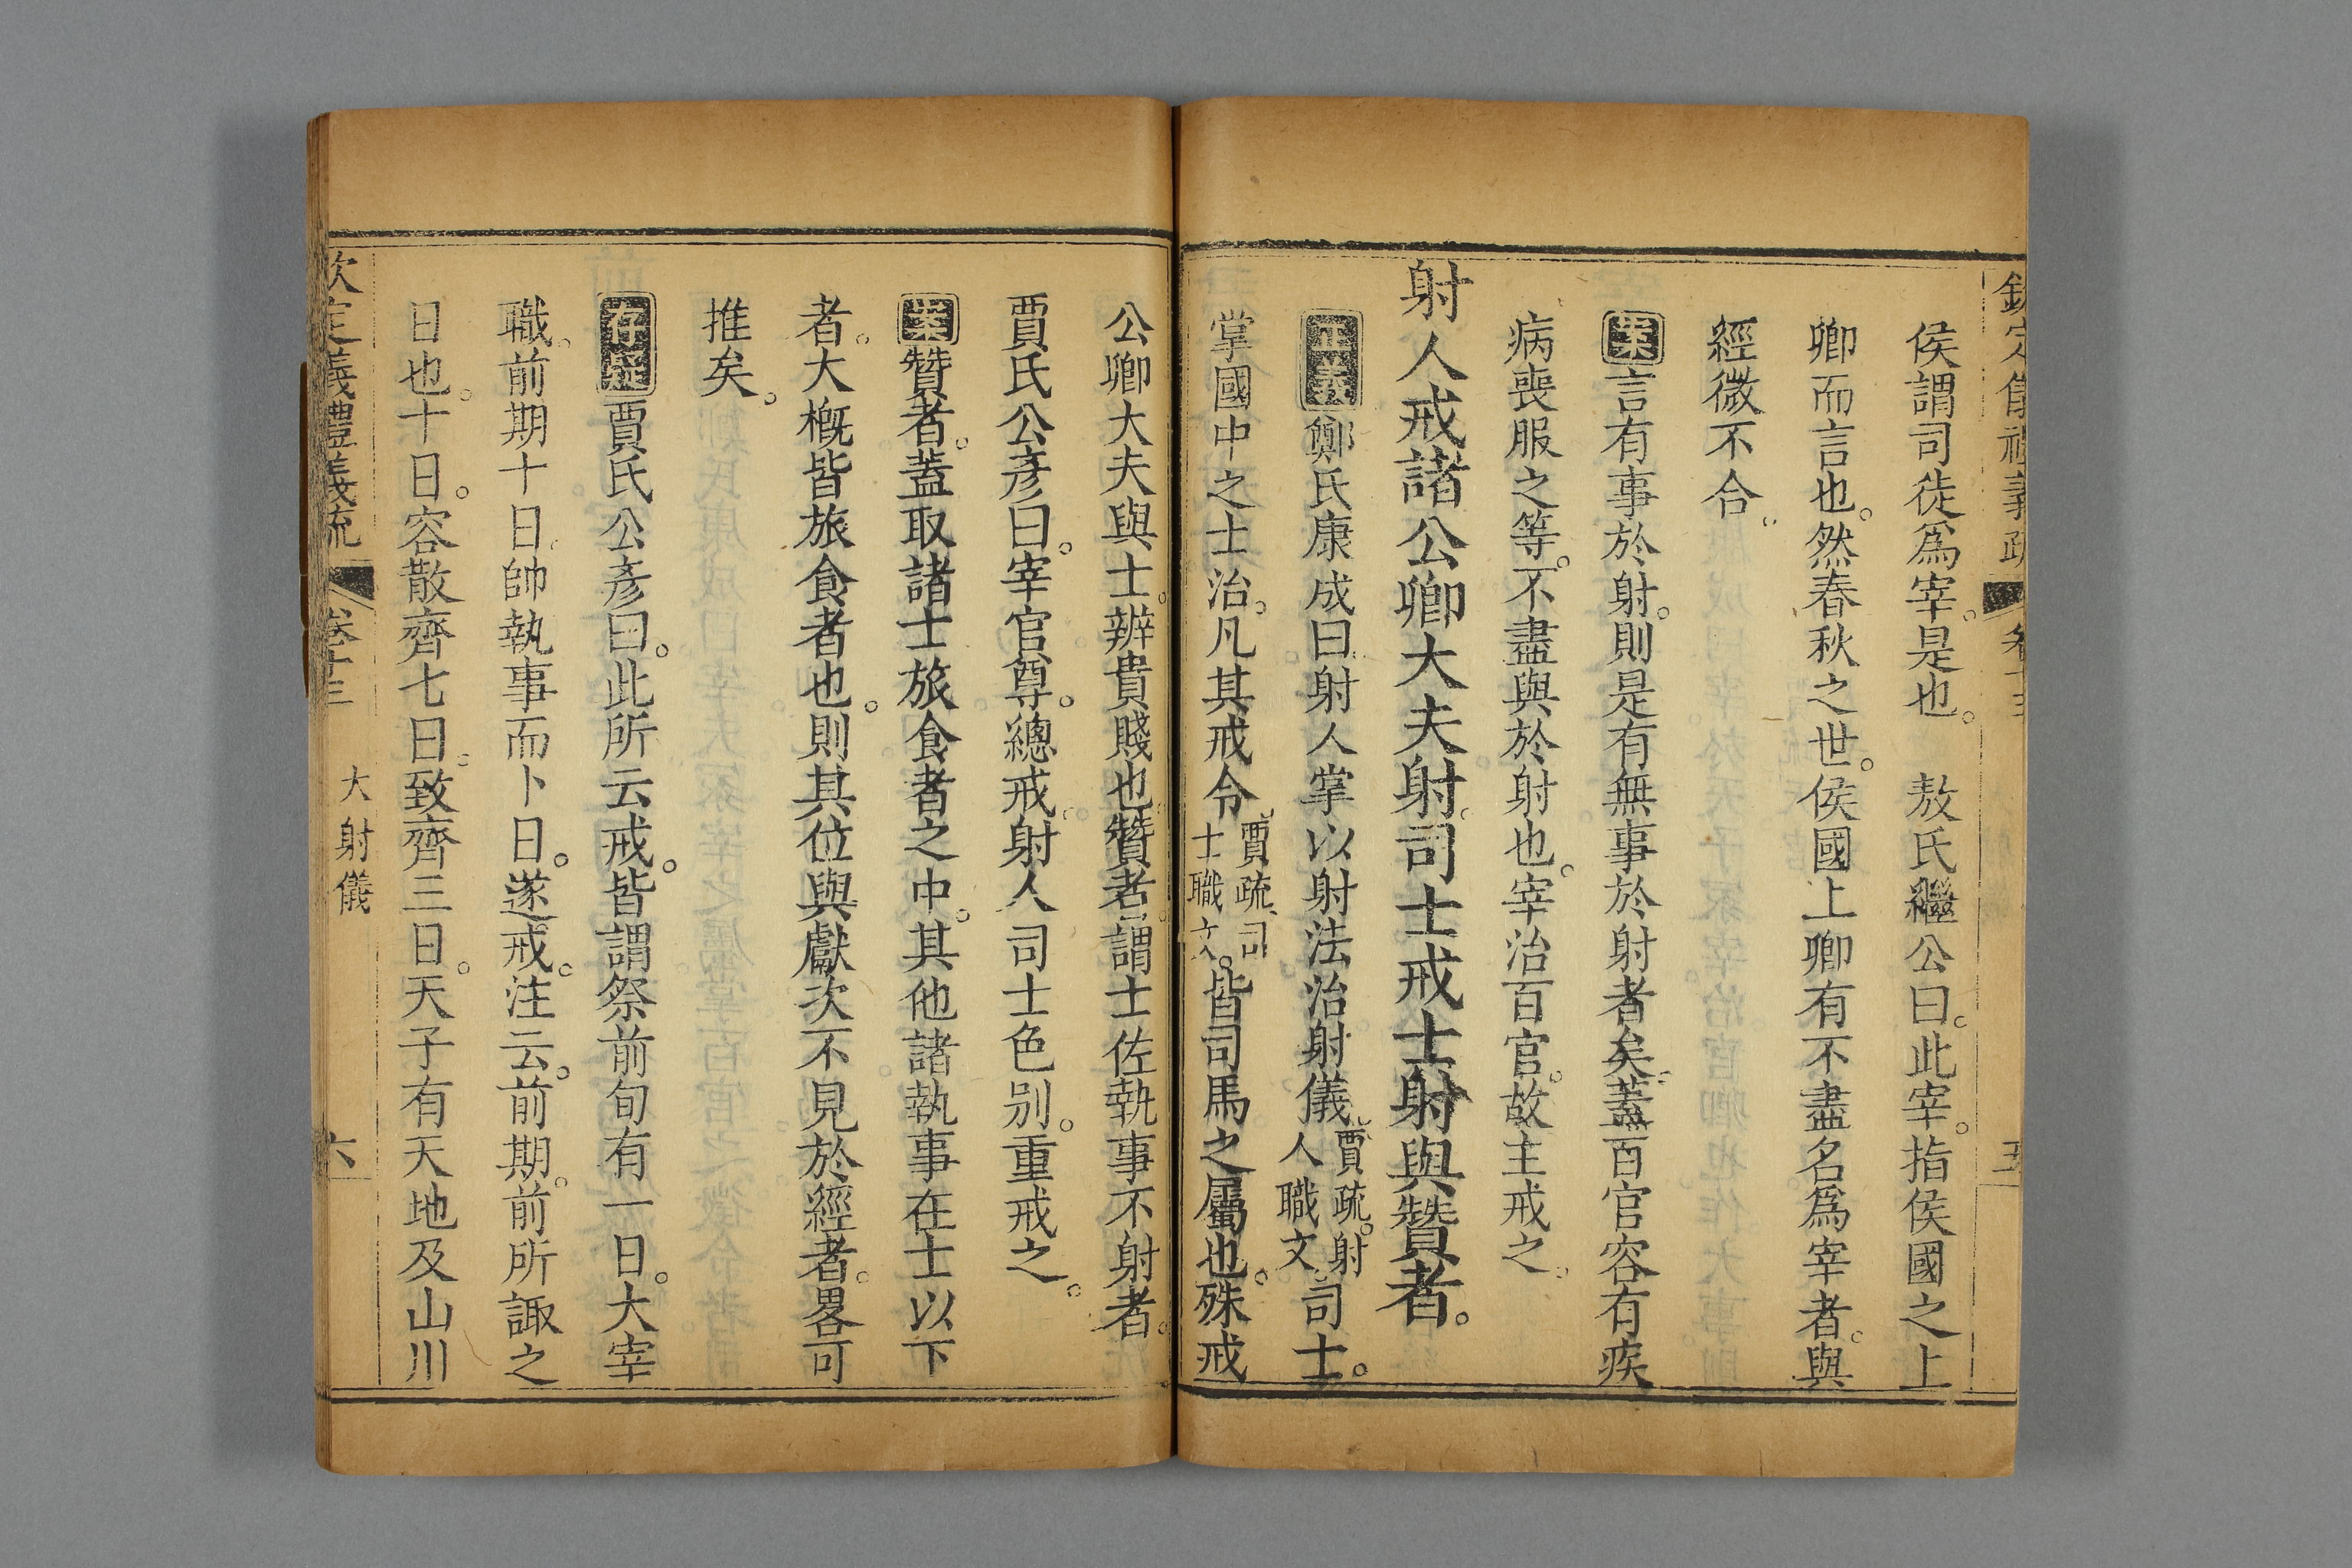 欽定儀禮義疏 卷十三 五
侯謂司徒爲宰。是也。 敖氏繼公曰。此宰。指侯國之上
卿而言也。然春秋之世。侯國上卿有不盡名爲宰者。與
經微不合。
案言有事於射。則是有無事於射者矣。蓋百官容有疾
病喪服之等。不盡與於射也。宰治百官。故主戒之。
射人戒諸公卿大夫射。司士戒士射與贊者。
正義鄭氏康成曰。射人掌以射法治射儀。賈疏。射人職文。司士。
掌國中之士治。凡其戒令。賈疏。司士職文。皆司馬之屬也。殊戒
公卿大夫與士。辨貴賤也。贊者。謂士佐執事不射者。
賈氏公彥曰。宰官尊。總戒。射人司士色别。重戒之。
案贊者。蓋取諸士旅食者之中。其他諸執事在士以下
者。大槪皆旅食者也。則其位與獻次不見於經者。畧可
推矣。
存疑賈氏公彥曰。此所云戒。皆謂祭前旬有一日。大宰
職。前期十日。帥執事而卜日。遂戒。注云。前期。前所諏之
日也。十日。容散齊七日。致齊三日。天子有天地及山川
欽定儀禮義疏 卷十三 大射儀 六